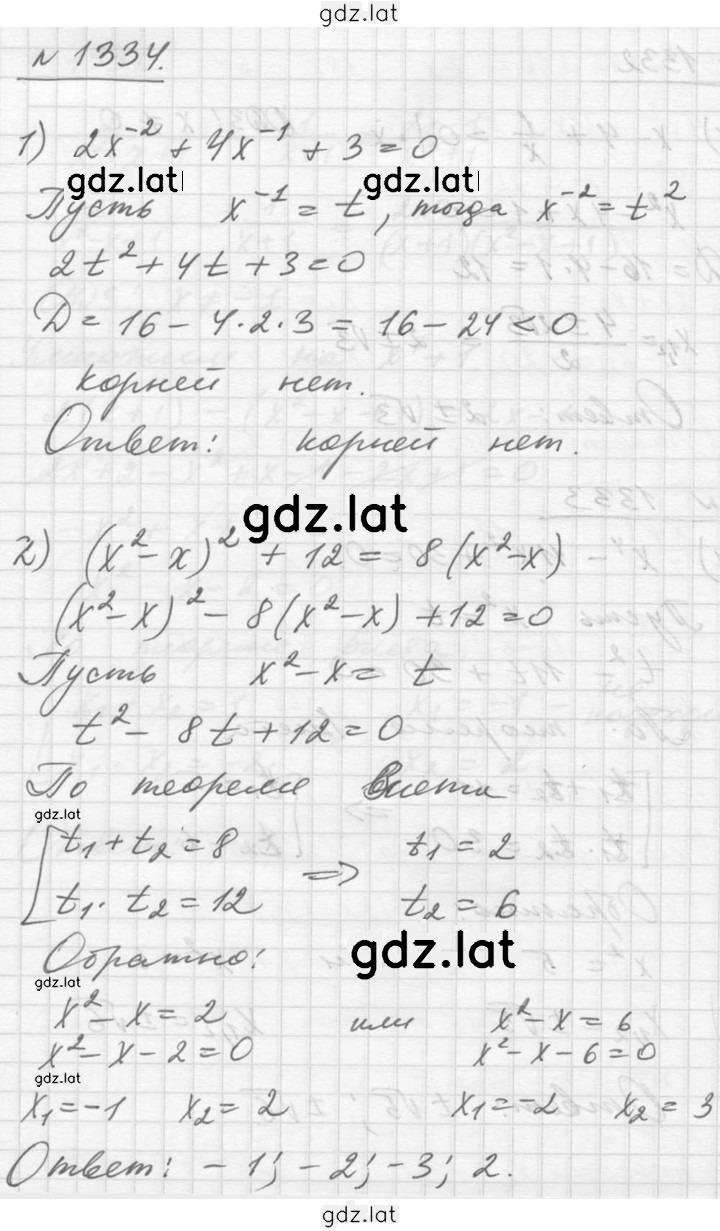 gdz.lat
№ 1334.
1) 2x⁻² + 4x⁻¹ + 3 = 0
gdz.lat gdz.lat
Пусть x⁻¹ = t, тогда x⁻² = t²
2t² + 4t + 3 = 0
D = 16 - 4·2·3 = 16 - 24 < 0
корней нет.
Ответ: корней нет.
gdz.lat
2) (x² - x)² + 12 = 8(x² - x)
(x² - x)² - 8(x² - x) + 12 = 0
Пусть x² - x = t
t² - 8t + 12 = 0
По теореме Виета
gdz.lat
[t₁ + t₂ = 8 ⇒ t₁ = 2
t₁ · t₂ = 12 t₂ = 6
Обратно: gdz.lat
gdz.lat
x² - x = 2 или x² - x = 6
x² - x - 2 = 0 x² - x - 6 = 0
gdz.lat
x₁ = -1 x₂ = 2 x₁ = -2 x₂ = 3
Ответ: -1; -2; -3; 2.
gdz.lat